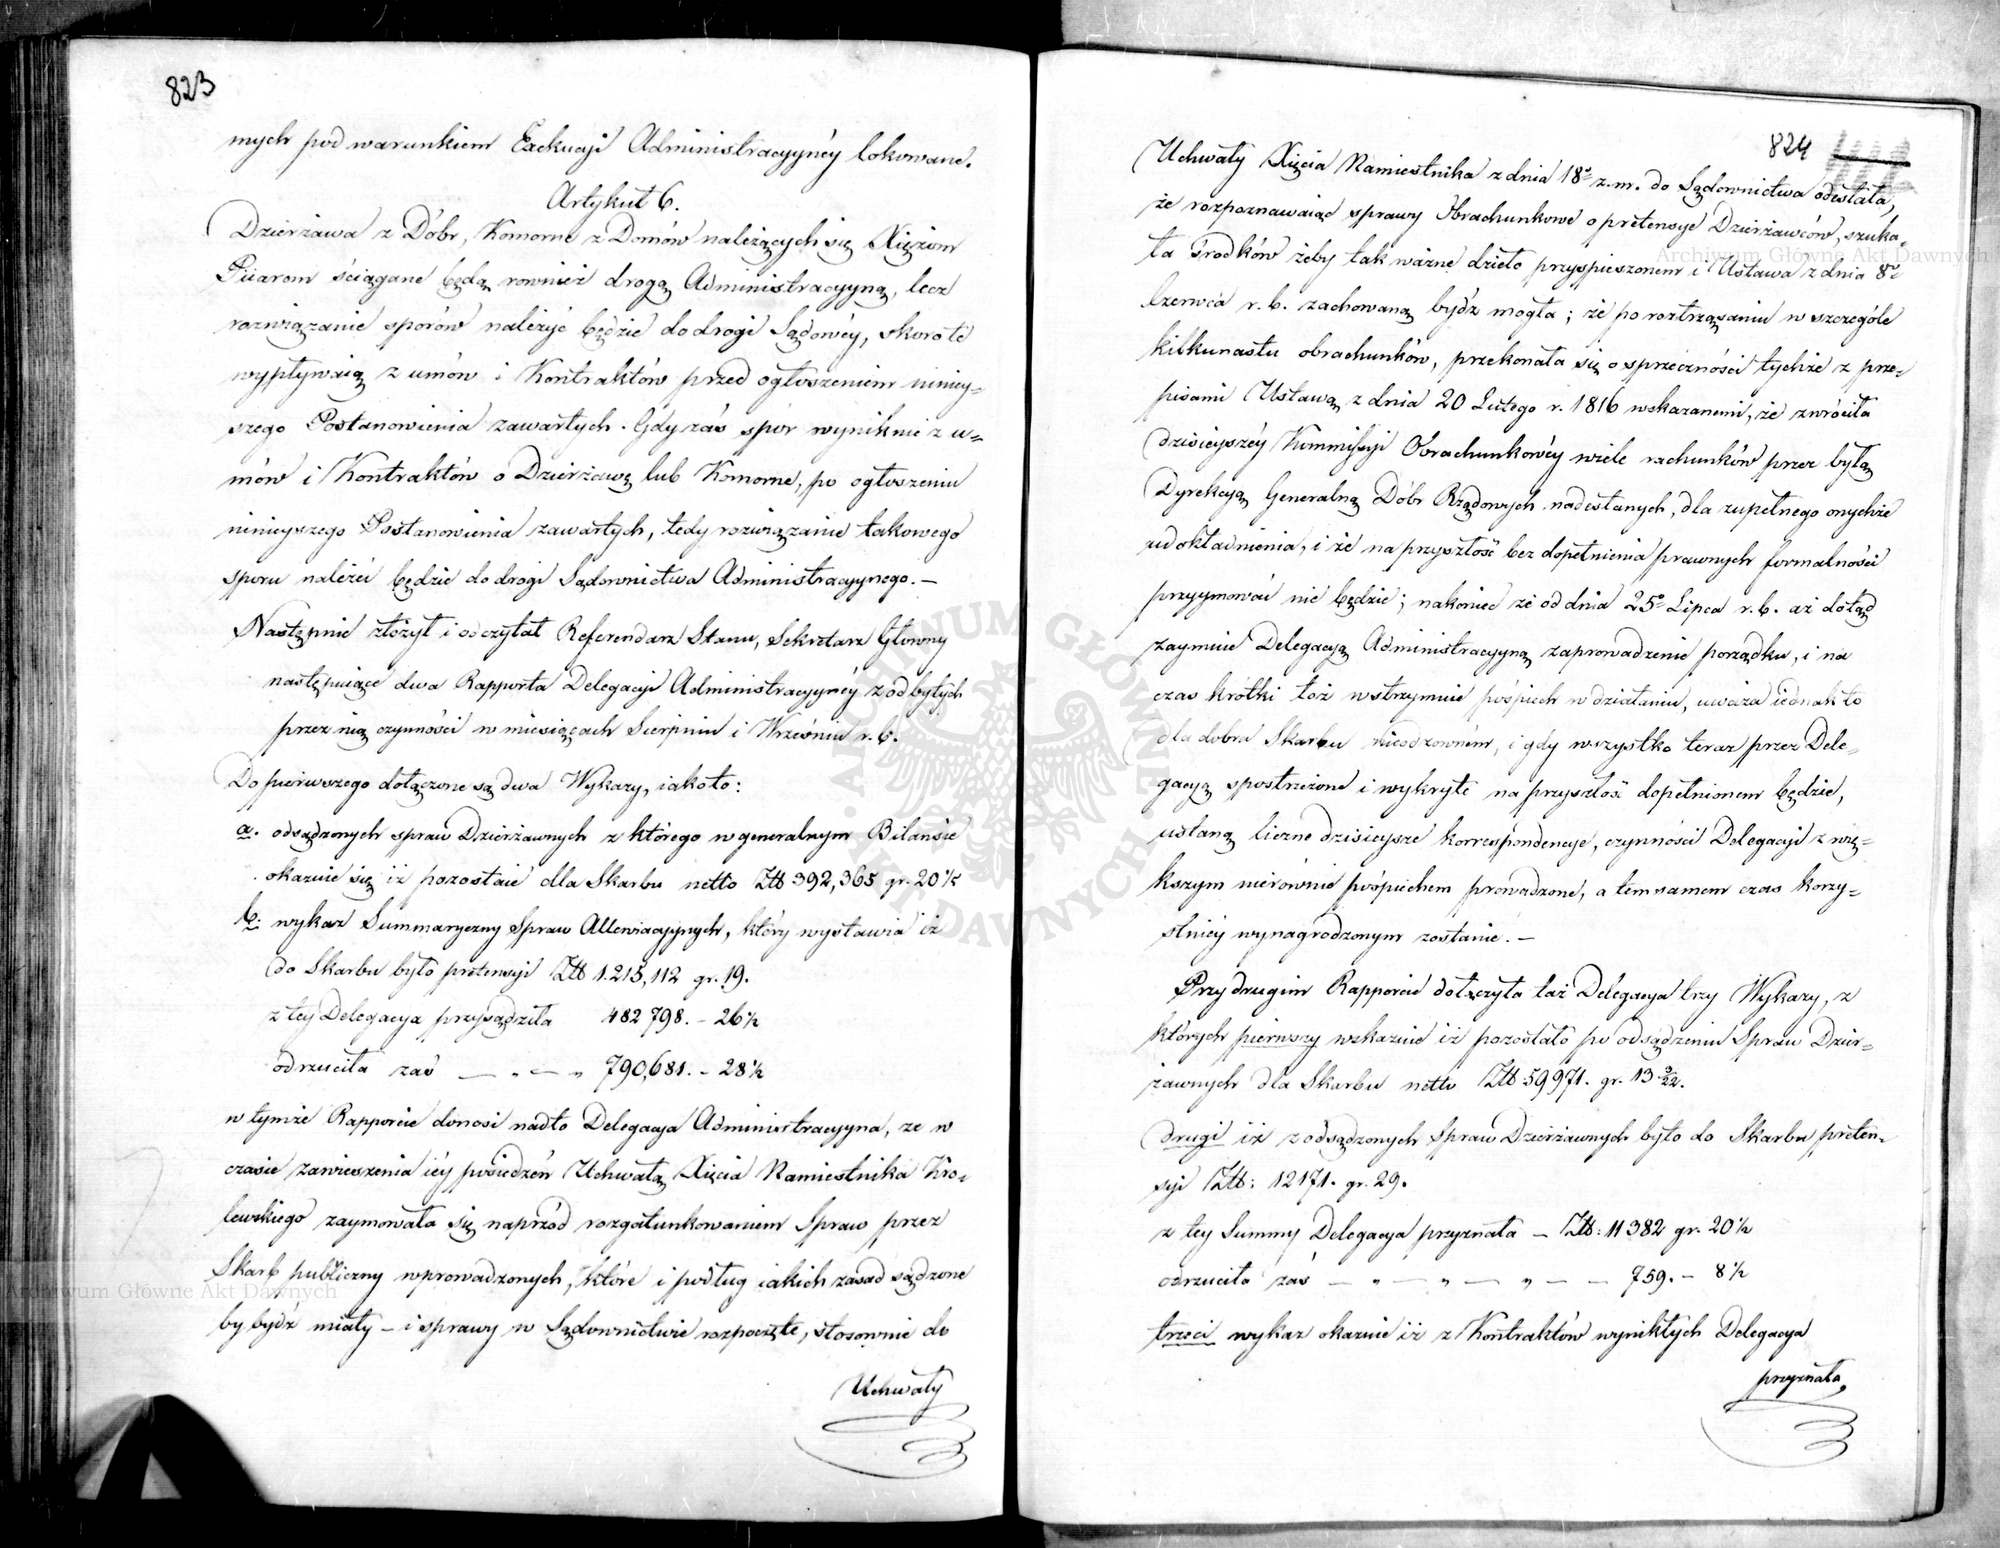 823
mych pod warunkiem Exekucyi Administracyynéy lokowane.
Artykuł 6.
Dzierżawa z Dóbr, Komorne z Domów należących się Xiężom
Piiarom ściągane będą rownież drogą Administracyyną, lecz
rozwiązanie sporów należyć będzie do drogi Sądowéy, skoro te
wypływaią z umów i Kontraktów przed ogłoszeniem niniey=
szego Postanowienia zawartych. Gdy zaś spór wyniknie z u=
mów i Kontraktów o Dzierżawę lub Komorne, po ogłoszeniu
ninieyszego Postanowienia zawartych, tedy rozwiązanie takowego
sporu należéć będzie do drogi Sądownictwa Administracyynego. —
Następnie złożył i odczytał Referendarz Stanu, Sekretarz Główny
następuiące dwa Rapporta Delegacyi Administracyynéy z odbytych
przez nią czynności w miesiącach Sierpniu i Wrześniu r. b.
Do pierwszego dołączone są dwa Wykazy, iako to:
a. odsądzonych spraw Dzierżawnych z którego w generalnym Bilansie
okazuie się iż pozostaie dla Skarbu netto Złł 392,365 gr. 20½
b. wykaz Summaryczny Spraw Allewiacyynych, który wystawia iż
do Skarbu było pretensyi Złł 1.215,112 gr. 19.
z tey Delegacya przysądziła 482 798. – 26½
odrzuciła zaś — „ — „ 790,681. – 28½
w tymże Rapporcie donosi nadto Delegacya Administracyyna, ze w
czasie zawieszenia iéy posiedzeń Uchwałą Xięcia Namiestnika Kró=
lewskiego zaymowała się naprzód rozgatunkowaniem Spraw przez
Skarb publiczny wprowadzonych, które i podług iakich zasad sądzone
by bydź miały – i sprawy w Sądownictwie rozpoczęte, stosownie do
Uchwały
824
Uchwały Xięcia Namiestnika z dnia 18º z. m. do Sądownictwa odesłała,
że rozpoznawaiąc sprawy Obrachunkowe o pretensye Dzierżawców, szuka=
ła środków żeby tak ważne dzieło przyspieszonem i Ustawa z dnia 8º
Czerwca r. b. zachowaną bydź mogła; że po roztrząsaniu w szczególe
kilkunastu obrachunków, przekonała się o sprzeczności tychże z prze=
pisami Ustawą z dnia 20 Lutego r. 1816 wskazanemi, że zwróciła
dzisieyszéy Kommissyi Obrachunkowéy wiele rachunków przez byłą
Dyrekcyą Generalną Dóbr Rządowych nadesłanych, dla zupełnego onychże
udokładnienia, i że na przyszłość bez dopełnienia prawnych formalności
przyymować nie będzie; nakoniec że od dnia 25º Lipca r. b. aż dotąd
zaymuie Delegacyą Administracyyną zaprowadzenie porządku, i na
czas krótki toż wstrzymuie pośpiech w działaniu, uważa iednak to
dla dobra Skarbu nieodzownem, i gdy wszystko teraz przez Dele=
gacyą spostrzeżone i wykryte na przyszłość dopełnionem będzie,
ustaną liczne dzisieysze korrespondencye, czynności Delegacyi z wię=
kszym nierównie pośpiechem prowadzone, a tem samem czas korzy=
stniéy wynagrodzonym zostanie. —
Przy drugim Rapporcie dołączyła taż Delegacya trzy Wykazy, z
których pierwszy wskazuie iż pozostało po odsądzeniu Spraw Dzier=
żawnych dla Skarbu netto Złł: 59971. gr. 13 9/22.
drugi iż z odsądzonych Spraw Dzierżawnych było do Skarbu preten=
syi Złł: 12171. gr. 29.
z tey Summy Delegacya przyznała – Złł: 11382 gr. 20½
odrzuciła zaś — „ — „ — „ — — 759. – 8½
trzeci wykaz okazuie iż z Kontraktów wynikłych Delegacya
przyznała
Archiwum Główne Akt Dawnych
Archiwum Główne Akt Dawnych
ARCHIWUM GŁÓWNE AKT DAWNYCH